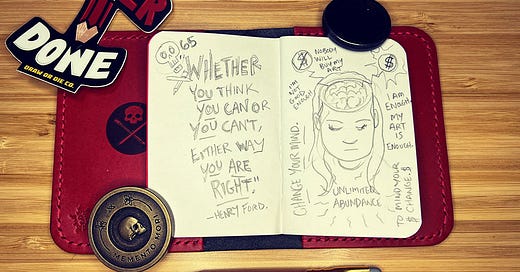 DONE
DRAW OR DIE CO.
65
"WHETHER
YOU THINK
YOU CAN OR
YOU CAN'T,
EITHER WAY
YOU ARE
RIGHT."
—HENRY FORD.
NOBODY
WILL
BUY MY
ART
$
$
I'M
NOT
GOOD
ENOUGH
I AM
ENOUGH.
MY
ART
IS
ENOUGH.
CHANGE YOUR MIND.
UNLIMITED
ABUNDANCE
TO MIND YOUR
$ CHANGE.$
MEMENTO MORI